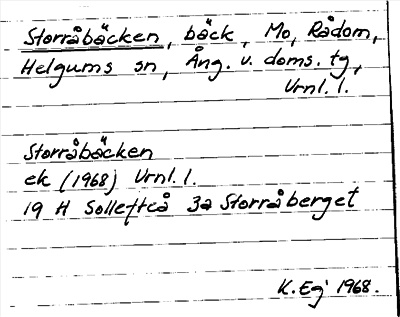 Storråbäcken, bäck, Mo, Rådom,
Helgums sn, Ång. v. doms. tg,
Urnl. l.
Storråbäcken
ek (1968) Urnl. l.
19 H Sollefteå 3a Storråberget
K. Eg 1968.